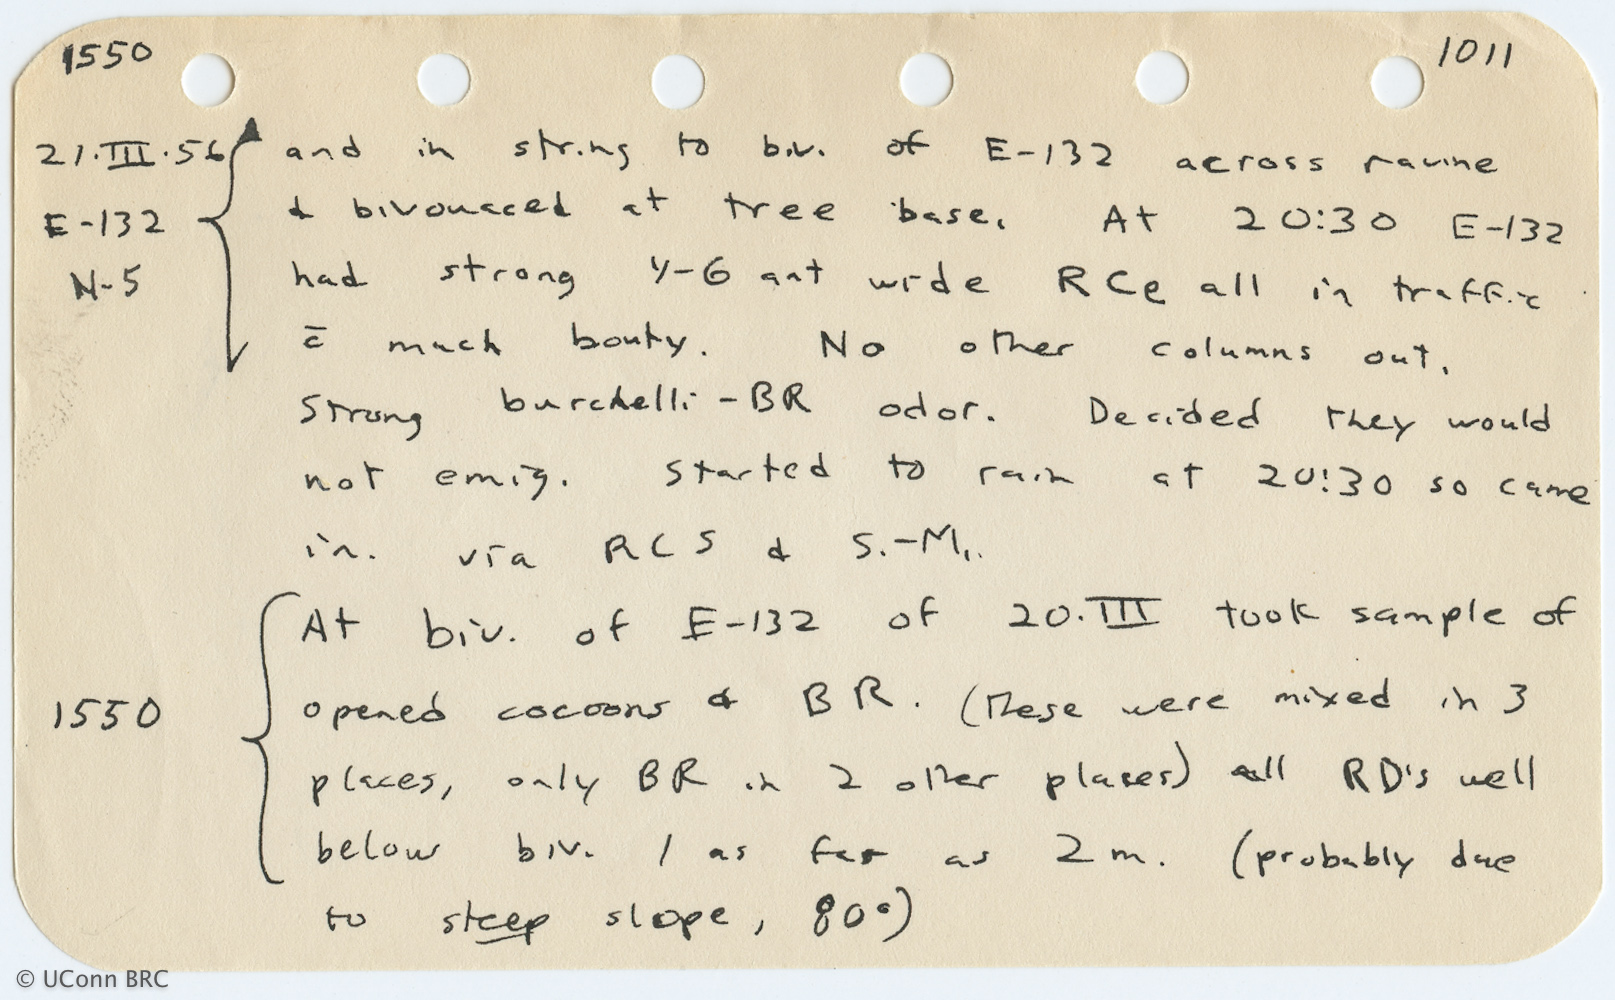 1550 1011
21.III.56 and in string to biv. of E-132 across ravine
E-132 & bivouaced at tree base. At 20:30 E-132
N-5 had strong 4-6 ant wide RCe all in traffic
c̄ much booty. No other columns out.
Strong burchelli-BR odor. Decided they would
not emig. Started to rain at 20:30 so came
in. via RCS & S.-M.
At biv. of E-132 of 20.III took sample of
1550 opened cocoons & BR. (These were mixed in 3
places, only BR in 2 other places) all RD's well
below biv. 1 as far as 2 m. (probably due
to steep slope, 80°)
© UConn BRC